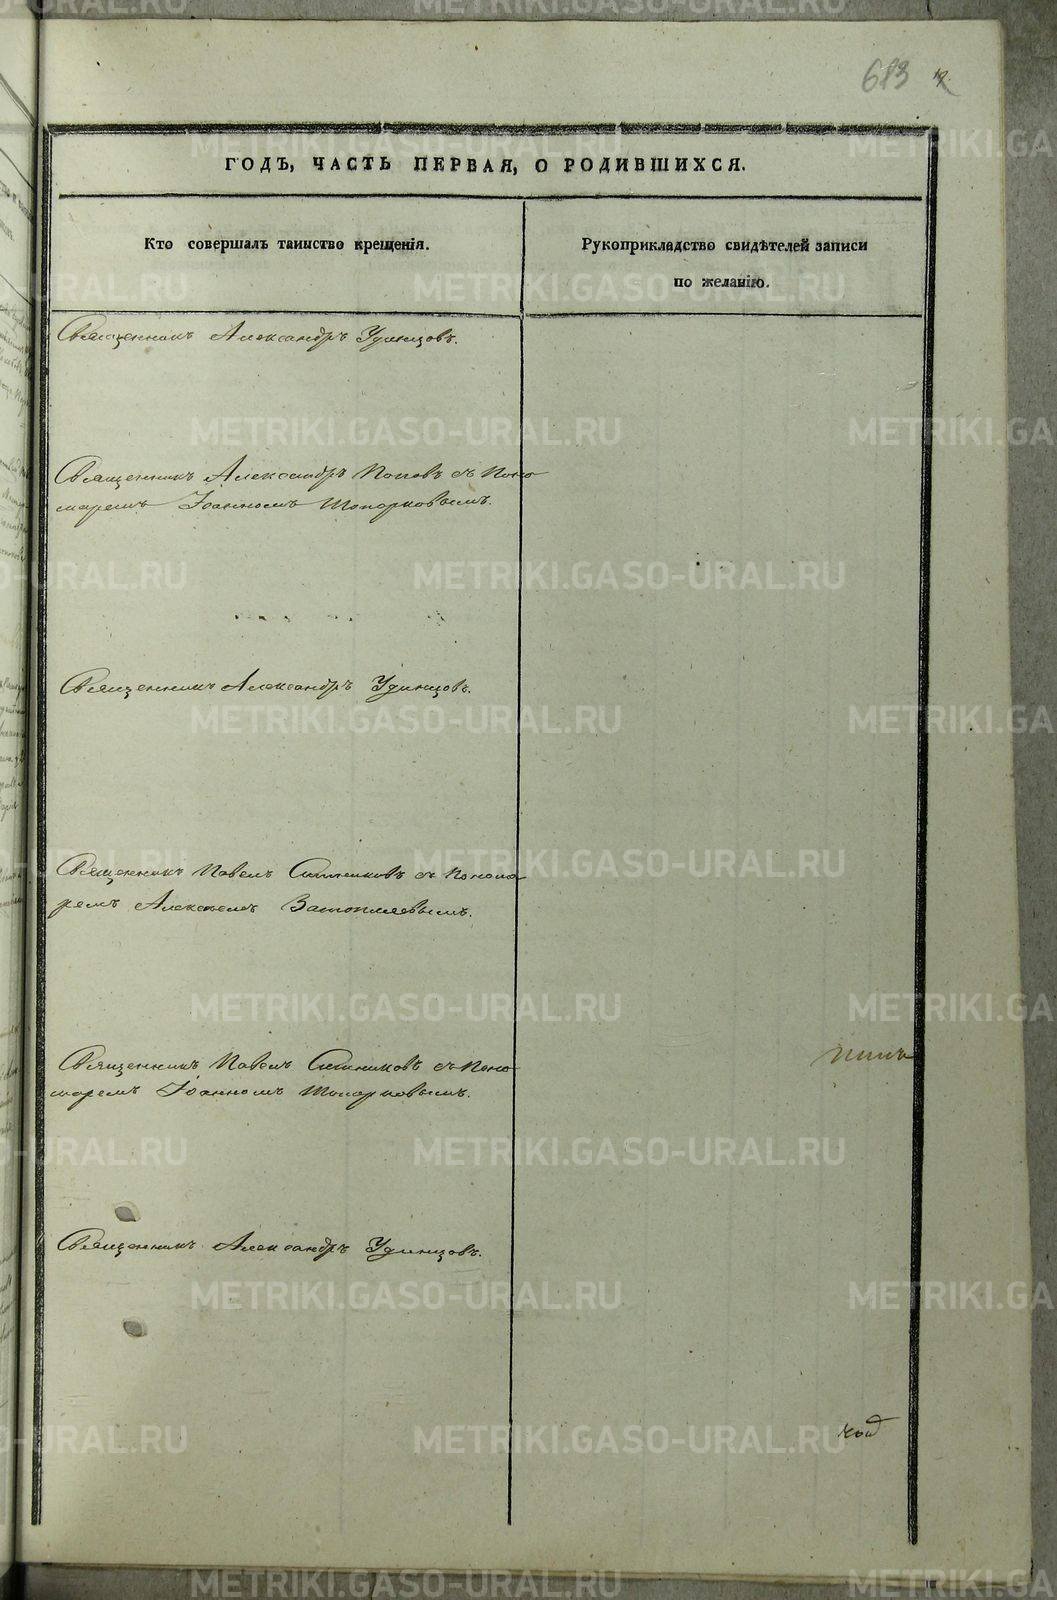 683
ГОДЪ, ЧАСТЬ ПЕРВАЯ, О РОДИВШИХСЯ.
Кто совершалъ таинство крещенія.
Рукоприкладство свидѣтелей записи
по желанію.
Священникъ Александръ Удинцовъ.
Священникъ Александръ Поповъ съ Поно
маремъ Іоанномъ Топорковымъ.
Священникъ Александръ Удинцовъ.
Священникъ Павелъ Ситниковъ съ Понома
ремъ Алексеемъ
Священникъ Павелъ Ситниковъ съ Поно
маремъ Іоанномъ Топорковымъ.
Священникъ Александръ Удинцовъ.
METRIKI.GASO-URAL.RU